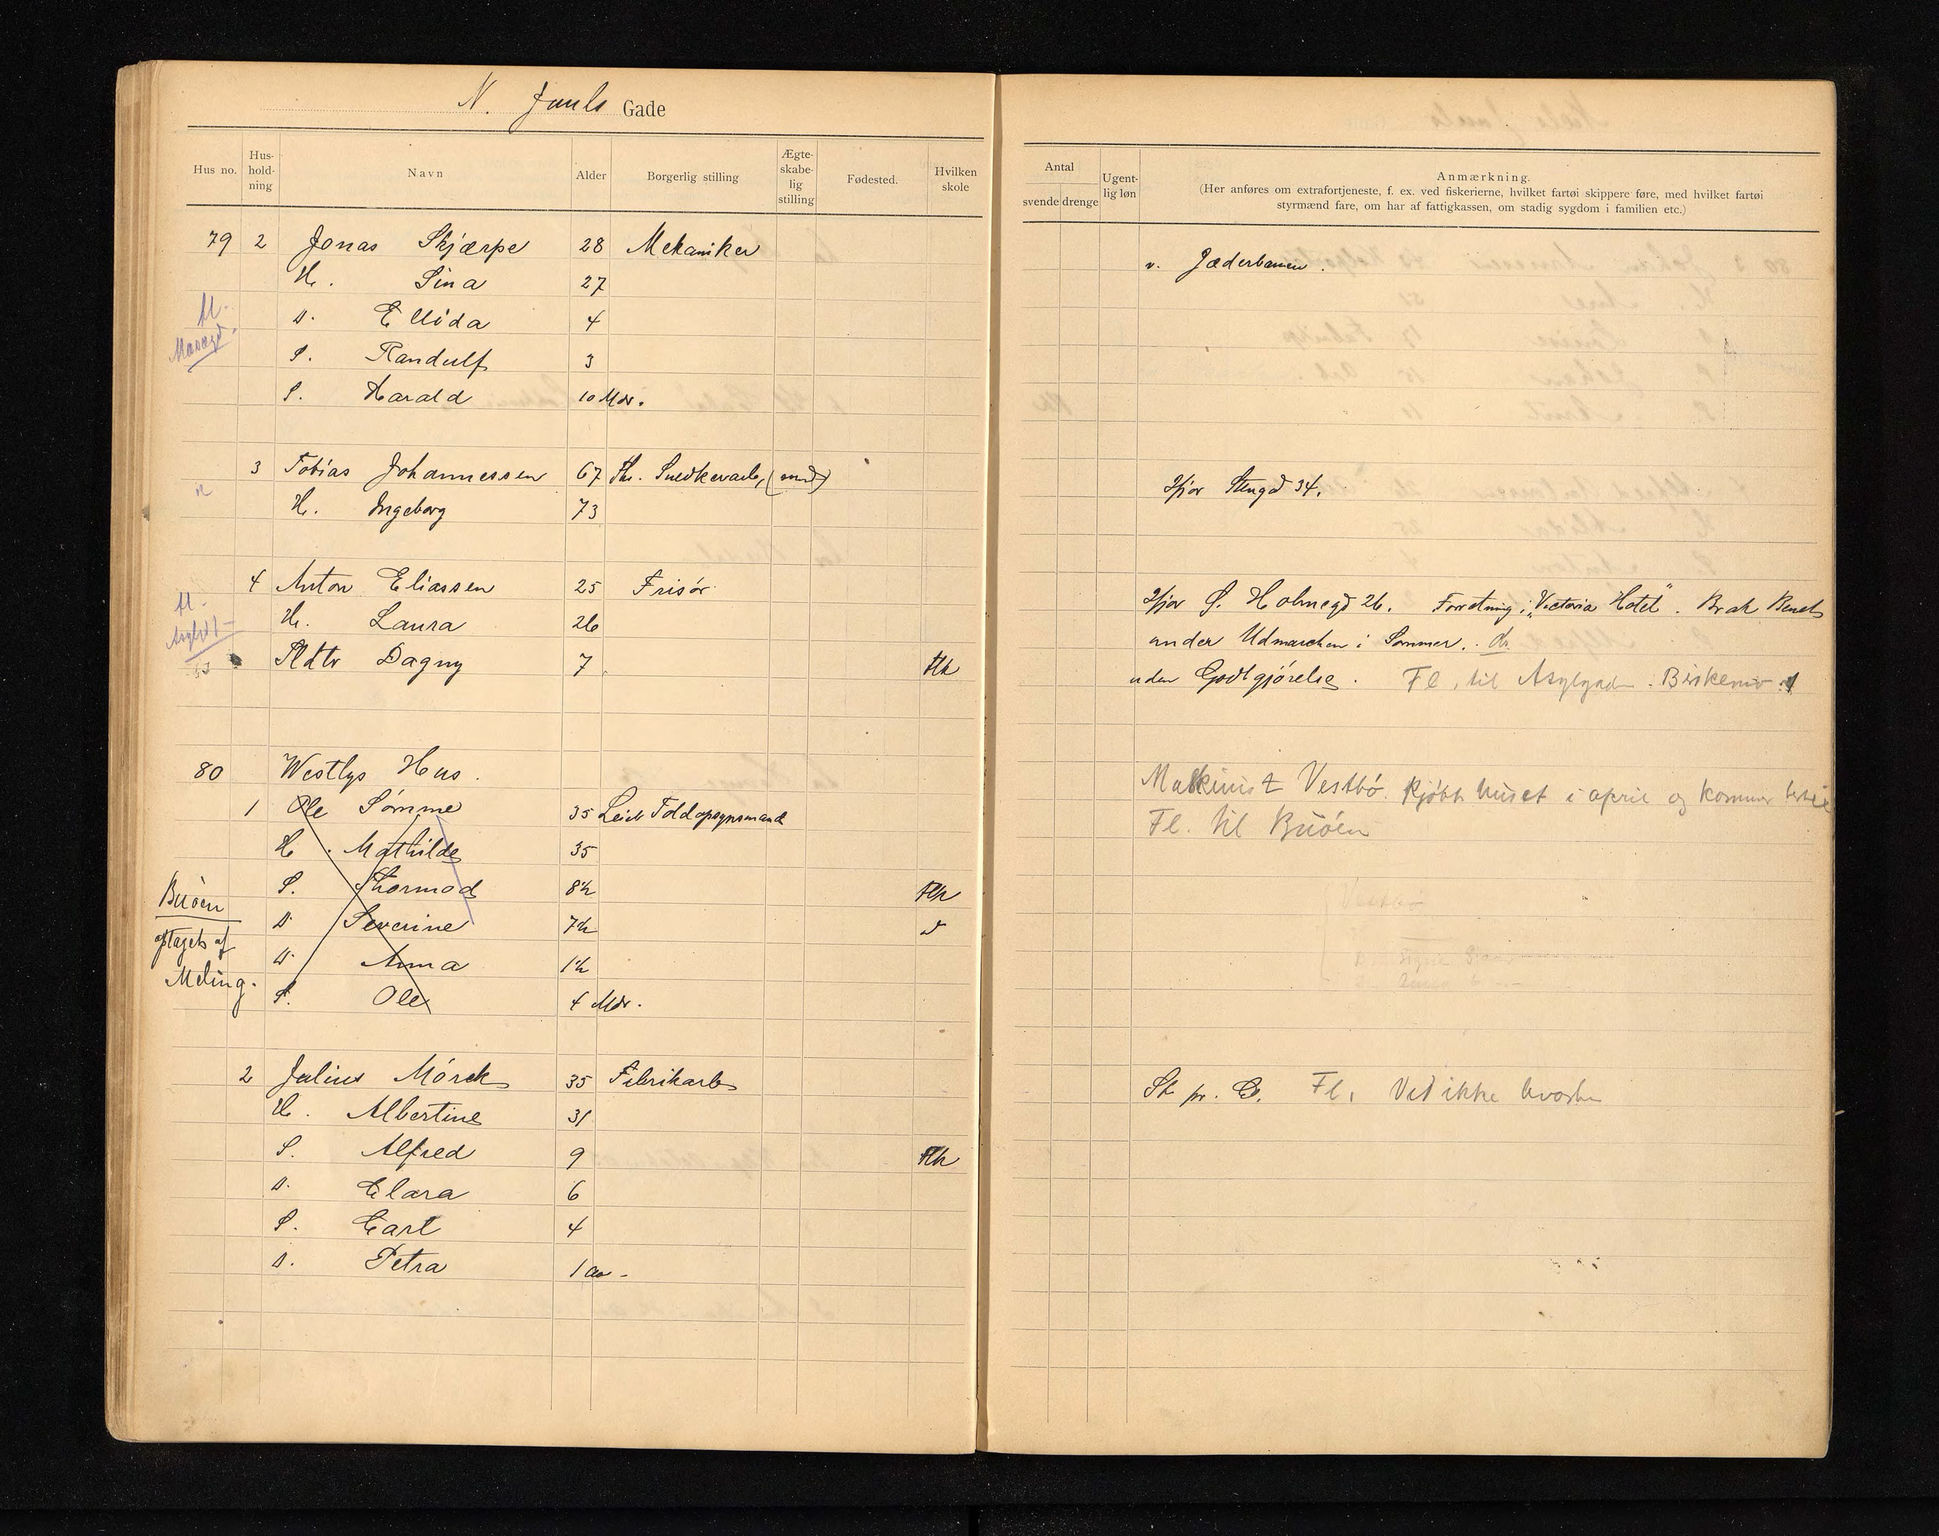 N. Juuls Gade
Hus no. Hus-holdning Navn Alder Borgerlig stilling Ægte-skabe-lig stilling Fødested. Hvilken skole
79 2 Jonas Skjærpe 28 Mekaniker
H. Sina 27
D. Ellida 4
S. Randulf 3
S. Harald 10 Mdr.
3 Tobias Johannessen 67 Snedkerarb,
H. Ingeborg 73
4 Anton Eliassen 25 Frisör
H. Laura 26
Pldtr Dagny 7 Flk
80 Westlys Hus.
1 Ole Sömme 35 Toldopsynsmand
H. Mathilde 35
S. Thormod 8½ Flk
D. Severine 7½
D. Anna 1½
S. Ole 4 Mdr.
Buöen
optaget af
Meling.
2 Julius Mörck 35 Fabrikarb
H. Albertine 31
S. Alfred 9 Flk
D. Clara 6
S. Carl 4
D. Petra 1 aar
Antal svende drenge Ugent-lig løn Anmærkning.
(Her anføres om extrafortjeneste, f. ex. ved fiskerierne, hvilket fartøi skippere føre, med hvilket fartøi
styrmænd fare, om har af fattigkassen, om stadig sygdom i familien etc.)
v. Jæderbanen.
Ifjor Stengd 34.
Ifjor S. Holmegd 26. Forretning i "Victoria Hotel".
under Udmarchen i Sommer.
uden Godtgjörelse. Fl. til Asylgaden
Maskinist Vestbö kjöbt huset i april og kommer
Fl. til Buöen
Vestbö
St pr. C. Fl. Ved ikke hvorhen